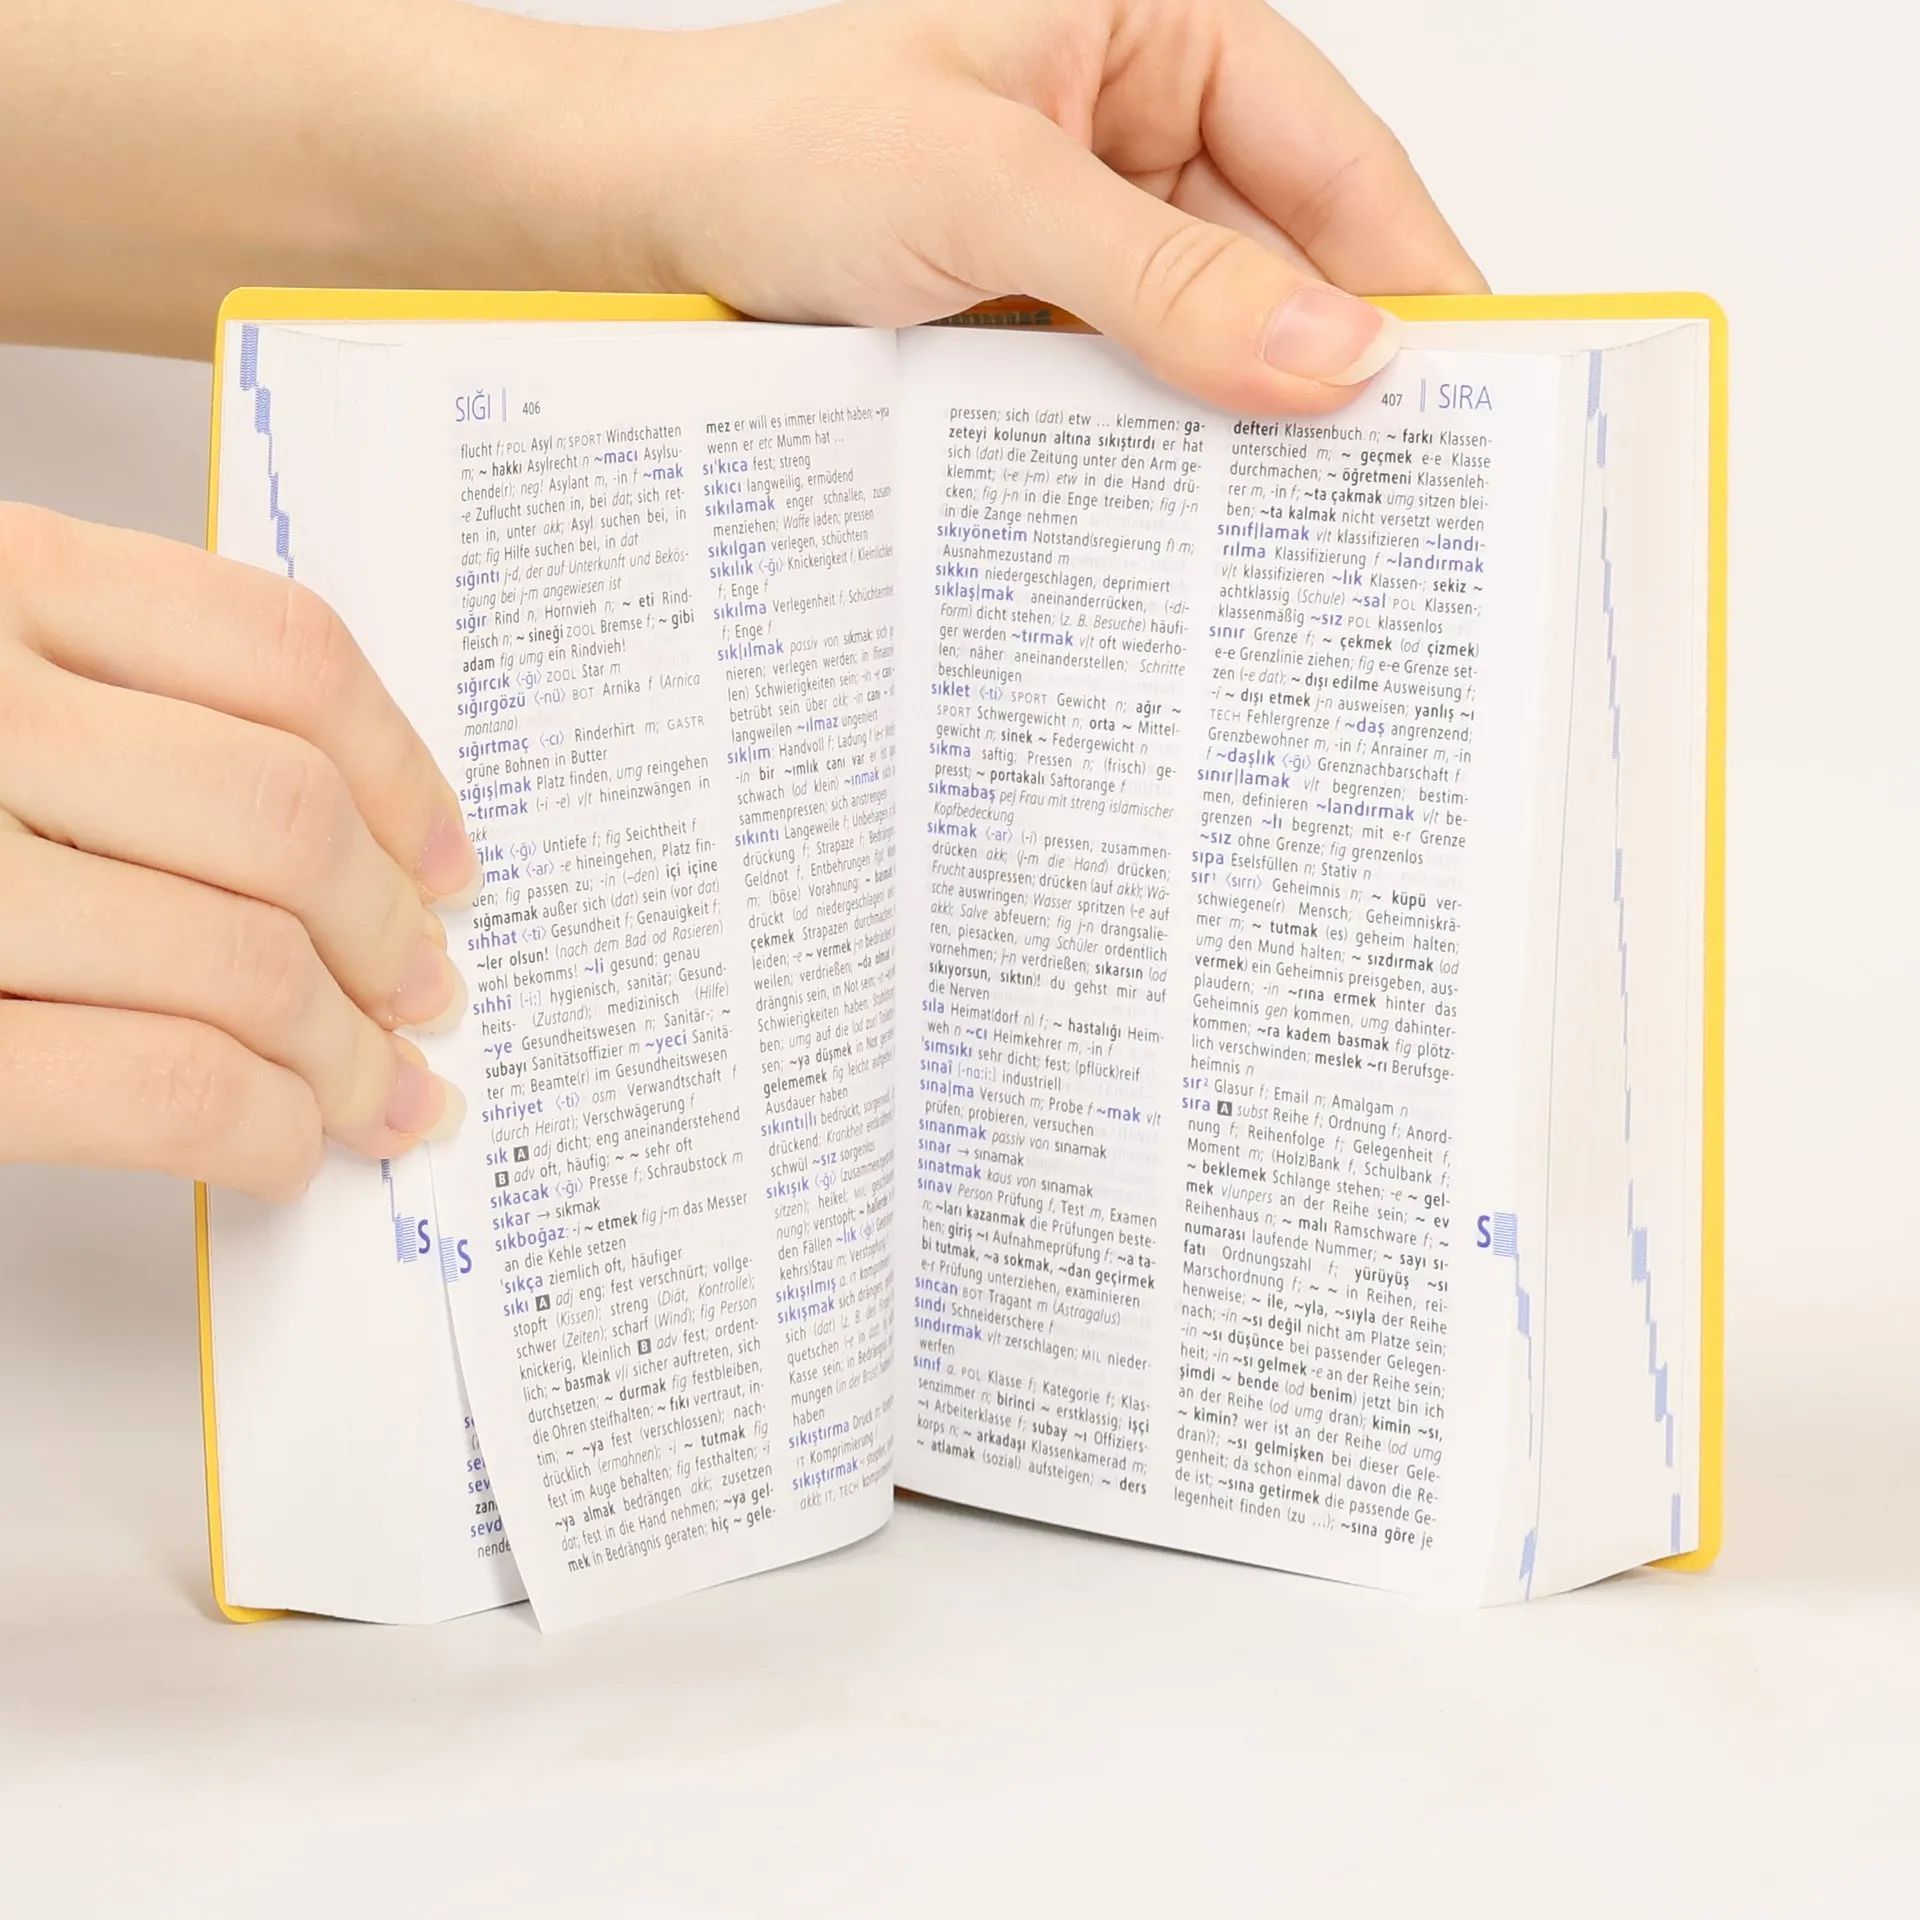 SIĞI | 406
flucht f; POL Asyl n; SPORT Windschatten
m; ~ hakkı Asylrecht n ~macı Asylsu-
chende(r); neg! Asylant m, -in f ~mak
-e Zuflucht suchen in, bei dat; sich ret-
ten in, unter akk; Asyl suchen bei, in
dat; fig Hilfe suchen bei, in dat
sığıntı j-d, der auf Unterkunft und Bekös-
tigung bei j-m angewiesen ist
sığır Rind n, Hornvieh n; ~ eti Rind-
fleisch n; ~ sineği ZOOL Bremse f; ~ gibi
adam fig umg ein Rindvieh!
sığırcık ⟨-ğı⟩ ZOOL Star m
sığırgözü ⟨-nü⟩ BOT Arnika f (Arnica
montana)
sığırtmaç ⟨-cı⟩ Rinderhirt m; GASTR
grüne Bohnen in Butter
sığış|mak Platz finden, umg reingehen
~tırmak (-i -e) v/t hineinzwängen in
akk
ğlık ⟨-ğı⟩ Untiefe f; fig Seichtheit f
ğmak ⟨-ar⟩ -e hineingehen, Platz fin-
den; fig passen zu; -in (-den) içi içine
sığmamak außer sich (dat) sein (vor dat)
sıhhat ⟨-ti⟩ Gesundheit f; Genauigkeit f;
~ler olsun! (nach dem Bad od Rasieren)
wohl bekomms! ~li gesund; genau
sıhhî [-iː] hygienisch, sanitär; Gesund-
heits- (Zustand); medizinisch (Hilfe)
~ye Gesundheitswesen n; Sanitär-; ~
subayı Sanitätsoffizier m ~yeci Sanitä-
ter m; Beamte(r) im Gesundheitswesen
sıhriyet ⟨-ti⟩ osm Verwandtschaft f
(durch Heirat); Verschwägerung f
sık A adj dicht; eng aneinanderstehend
B adv oft, häufig; ~ ~ sehr oft
sıkacak ⟨-ğı⟩ Presse f; Schraubstock m
sıkar → sıkmak
sıkboğaz: -i ~ etmek fig j-m das Messer
an die Kehle setzen
'sıkça ziemlich oft, häufiger
sıkı A adj eng; fest verschnürt; vollge-
stopft (Kissen); streng (Diät, Kontrolle);
schwer (Zeiten); scharf (Wind); fig Person
knickerig, kleinlich B adv fest; ordent-
lich; ~ basmak v/i sicher auftreten, sich
durchsetzen; ~ durmak fig festbleiben,
die Ohren steifhalten; ~ fıkı vertraut, in-
tim; ~ ~ya fest (verschlossen); nach-
drücklich (ermahnen); -i ~ tutmak fig
fest im Auge behalten; fig festhalten; -i
~ya almak bedrängen akk; zusetzen
dat; fest in die Hand nehmen; ~ya gel-
mek in Bedrängnis geraten; hiç ~ gele-
mez er will es immer leicht haben; ~ysa
wenn er etc Mumm hat ...
sı'kıca fest; streng
sıkıcı langweilig, ermüdend
sıkılamak enger schnallen, zusam-
menziehen; Waffe laden; pressen
sıkılgan verlegen, schüchtern
sıkılık ⟨-ğı⟩ Knickerigkeit f, Kleinlichkei
f; Enge f
sıkılma Verlegenheit f, Schüchternhei
f; Enge f
sık|ılmak passiv von sıkmak; sich
nieren; verlegen werden; in (finanziel
len) Schwierigkeiten sein;
betrübt sein über akk; -in canı
langweilen ~ılmaz ungeniert
sık|ım: Handvoll f; Ladung f
-in bir ~ımlık canı var er ist
schwach (od klein) ~ınmak
sammenpressen; sich anstrengen
sıkıntı Langeweile f; Unbehagen
drückung f; Strapaze f;
Geldnot f, Entbehrungen fpl;
m; (böse) Vorahnung;
drückt (od niedergeschlagen)
çekmek Strapazen durchmachen,
leiden; -e ~ vermek j-n bedrücken,
weilen; verdrießen; ~da olmak
drängnis sein, in Not sein;
Schwierigkeiten haben;
ben; umg auf die (od zur) Toilette
sen; ~ya düşmek in Not geraten
gelememek fig leicht aufgeben
Ausdauer haben
sıkıntı|lı bedrückt, sorgenvoll,
drückend; Krankheit
schwül ~sız sorgenlos
sıkışık ⟨-ğı⟩ (zusammen)
sitzen); heikel; MIL
nung); verstopft;
den Fällen ~lık ⟨-ğı⟩
kehrs)Stau m;
sıkışılmış a. IT
sıkışmak sich drängen,
sich (dat) (z. B. den Finger)
quetschen (-e in dat);
Kasse sein; in Bedrängnis
mungen (in der Brust)
haben
sıkıştırma Druck m;
IT Komprimierung f
sıkıştırmak
akk); IT, TECH
S S
407 | SIRA
pressen; sich (dat) etw ... klemmen: ga-
zeteyi kolunun altına sıkıştırdı er hat
sich (dat) die Zeitung unter den Arm ge-
klemmt; (-e j-m) etw in die Hand drü-
cken; fig j-n in die Enge treiben; fig j-n
in die Zange nehmen
sıkıyönetim Notstand(sregierung f) m;
Ausnahmezustand m
sıkkın niedergeschlagen, deprimiert
sıklaş|mak aneinanderrücken, (-di-
Form) dicht stehen; (z. B. Besuche) häufi-
ger werden ~tırmak v/t oft wiederho-
len; näher aneinanderstellen; Schritte
beschleunigen
sıklet ⟨-ti⟩ SPORT Gewicht n; ağır ~
SPORT Schwergewicht n; orta ~ Mittel-
gewicht n; sinek ~ Federgewicht n
sıkma saftig; Pressen n; (frisch) ge-
presst; ~ portakalı Saftorange f
sıkmabaş pej Frau mit streng islamischer
Kopfbedeckung
sıkmak ⟨-ar⟩ (-i) pressen, zusammen-
drücken akk; (j-m die Hand) drücken;
Frucht auspressen; drücken (auf akk); Wä-
sche auswringen; Wasser spritzen (-e auf
akk); Salve abfeuern; fig j-n drangsalie-
ren, piesacken, umg Schüler ordentlich
vornehmen; j-n verdrießen; sıkarsın (od
sıkıyorsun, sıktın)! du gehst mir auf
die Nerven
sıla Heimat(dorf n) f; ~ hastalığı Heim-
weh n ~cı Heimkehrer m, -in f
'sımsıkı sehr dicht; fest; (pflück)reif
sınaî [-nɑːiː] industriell
sına|ma Versuch m; Probe f ~mak v/t
prüfen; probieren, versuchen
sınanmak passiv von sınamak
sınar → sınamak
sınatmak kaus von sınamak
sınav Person Prüfung f, Test m, Examen
n; ~ları kazanmak die Prüfungen beste-
hen; giriş ~ı Aufnahmeprüfung f; ~a ta-
bi tutmak, ~a sokmak, ~dan geçirmek
e-r Prüfung unterziehen, examinieren
sıncan BOT Tragant m (Astragalus)
sındı Schneiderschere f
sındırmak v/t zerschlagen; MIL nieder-
werfen
sınıf a. POL Klasse f; Kategorie f; Klas-
senzimmer n; birinci ~ erstklassig; işçi
~ı Arbeiterklasse f; subay ~ı Offiziers-
korps n; ~ arkadaşı Klassenkamerad m;
~ atlamak (sozial) aufsteigen; ~ ders
defteri Klassenbuch n; ~ farkı Klassen-
unterschied m; ~ geçmek e-e Klasse
durchmachen; ~ öğretmeni Klassenleh-
rer m, -in f; ~ta çakmak umg sitzen blei-
ben; ~ta kalmak nicht versetzt werden
sınıf|lamak v/t klassifizieren ~landı-
rılma Klassifizierung f ~landırmak
v/t klassifizieren ~lık Klassen-; sekiz ~
achtklassig (Schule) ~sal POL Klassen-;
klassenmäßig ~sız POL klassenlos
sınır Grenze f; ~ çekmek (od çizmek)
e-e Grenzlinie ziehen; fig e-e Grenze set-
zen (-e dat); ~ dışı edilme Ausweisung f;
-i ~ dışı etmek j-n ausweisen; yanlış ~ı
TECH Fehlergrenze f ~daş angrenzend;
Grenzbewohner m, -in f; Anrainer m, -in
f ~daşlık ⟨-ğı⟩ Grenznachbarschaft f
sınır|lamak v/t begrenzen; bestim-
men, definieren ~landırmak v/t be-
grenzen ~lı begrenzt; mit e-r Grenze
~sız ohne Grenze; fig grenzenlos
sıpa Eselsfüllen n; Stativ n
sır¹ ⟨sırrı⟩ Geheimnis n; ~ küpü ver-
schwiegene(r) Mensch; Geheimniskrä-
mer m; ~ tutmak (es) geheim halten;
umg den Mund halten; ~ sızdırmak (od
vermek) ein Geheimnis preisgeben, aus-
plaudern; -in ~rına ermek hinter das
Geheimnis gen kommen, umg dahinter-
kommen; ~ra kadem basmak fig plötz-
lich verschwinden; meslek ~rı Berufsge-
heimnis n
sır² Glasur f; Email n; Amalgam n
sıra A subst Reihe f; Ordnung f; Anord-
nung f; Reihenfolge f; Gelegenheit f,
Moment m; (Holz)Bank f, Schulbank f;
~ beklemek Schlange stehen; -e ~ gel-
mek v/unpers an der Reihe sein; ~ ev
Reihenhaus n; ~ malı Ramschware f; ~
numarası laufende Nummer; ~ sayı sı-
fatı Ordnungszahl f; yürüyüş ~sı
Marschordnung f; ~ ~ in Reihen, rei-
henweise; ~ ile, ~yla, ~sıyla der Reihe
nach; -in ~sı değil nicht am Platze sein;
-in ~sı düşünce bei passender Gelegen-
heit; -in ~sı gelmek -e an der Reihe sein;
şimdi ~ bende (od benim) jetzt bin ich
an der Reihe (od umg dran); kimin ~sı,
~ kimin? wer ist an der Reihe (od umg
dran)?; ~sı gelmişken bei dieser Gele-
genheit; da schon einmal davon die Re-
de ist; ~sına getirmek die passende Ge-
legenheit finden (zu ...); ~sına göre je
S